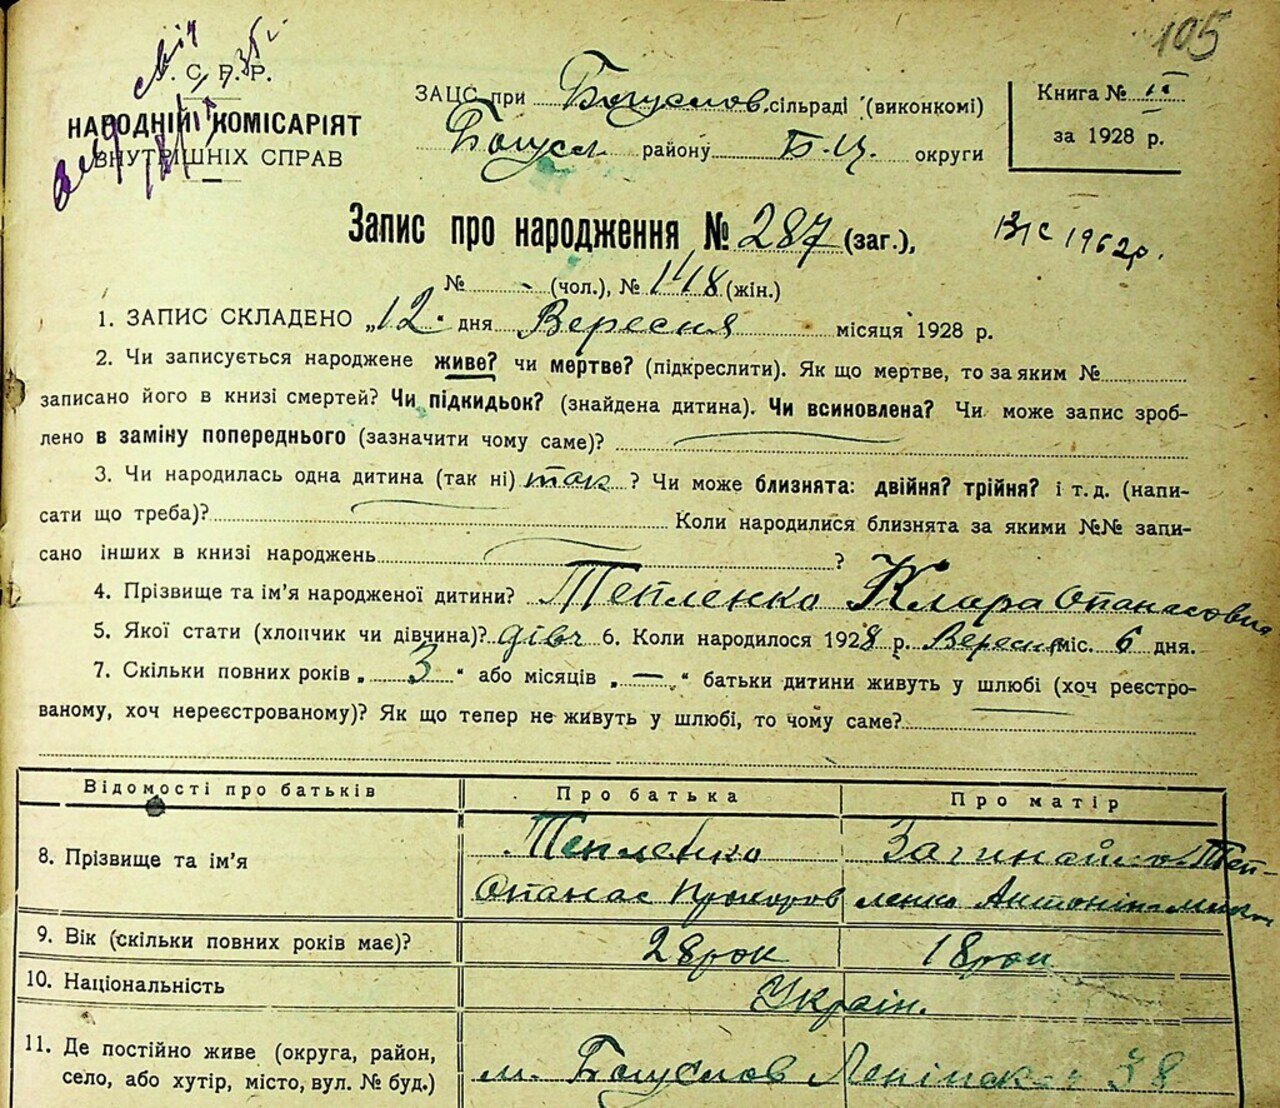 105
С. Р. Р.
НАРОДНІЙ КОМІСАРІЯТ
ВНУТРІШНІХ СПРАВ
ЗАЦС при Богуслов. сільраді (виконкомі)
Богусл. району Б-Ц. округи
Книга № II
за 1928 р.
Запис про народження № 287 (заг.),
1962р.
№ - (чол.), № 148 (жін.)
1. ЗАПИС СКЛАДЕНО „12" дня Вересня місяця 1928 р.
2. Чи записується народжене живе? чи мертве? (підкреслити). Як що мертве, то за яким №
записано його в книзі смертей? Чи підкидьок? (знайдена дитина). Чи всиновлена? Чи може запис зроб-
лено в заміну попереднього (зазначити чому саме)?
3. Чи народилась одна дитина (так ні) так ? Чи може близнята: двійня? трійня? і т. д. (напи-
сати що треба)? Коли народилися близнята за якими №№ запи-
сано інших в книзі народжень ?
4. Прізвище та ім'я народженої дитини? Тепленко Клара Опанасовна
5. Якої стати (хлопчик чи дівчина)? дівч 6. Коли народилося 1928 р. Вересня міс. 6 дня.
7. Скільки повних років „ 3 " або місяців „ — " батьки дитини живуть у шлюбі (хоч реєстро-
ваному, хоч нереєстрованому)? Як що тепер не живуть у шлюбі, то чому саме?
Відомості про батьків Про батька Про матір
8. Прізвище та ім'я Тепленко Загинайло-Теп-
Опанас Прохоров ленко Антоніна
9. Вік (скільки повних років має)? 28 рок 18 рок
10. Національність Україн.
11. Де постійно живе (округа, район,
село, або хутір, місто, вул. № буд.) м. Богуслов Ленінска 38